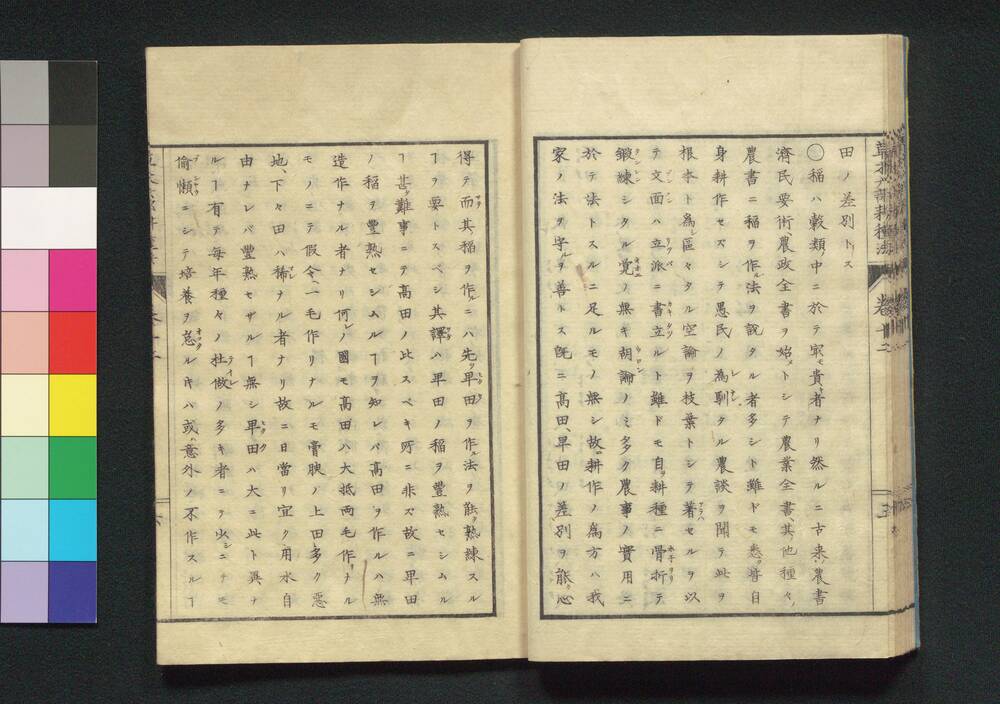 田ノ差別トス
〇稲ハ穀類ノ中ニ於テ最モ貴キ者ナリ然ルニ古来ノ農書
濟民要術農政全書ヲ始メトシテ農業全書其他種々ノ
農書ニ稲ヲ作ル法ヲ説タル者多シト雖ドモ悉ク皆自
身耕作セズシテ愚民ノ為馴タル農談ヲ聞テ此ヲ
根本ト為シ區々タル空論ヲ枝葉トシテ著セルヲ以
テ文面ハ立派ニ書立ルト雖ドモ自ラ耕種ニ骨折テ
鍛練シタル覚ノ無キ胡論ノミ多ク農事ノ實用ニ
於テ法トスルニ足ルモノ無シ故ニ耕作ノ為方ハ我
家ノ法ヲ守ルヲ善トス既ニ高田、早田ノ差別ヲ能ク心
得テ而其稲ヲ作ルニハ先ツ早田ヲ作ル法ヲ能ク熟練スル
ヿヲ要トスベシ其譯ハ早田ノ稲ヲ豐熟セシムル
ヿ甚タ難事ニテ高田ノ比スベキ所ニ非ズ故ニ早田
ノ稲ヲ豐熟セシムルヿヲ知レバ高田ヲ作ルハ無
造作ナル者ナリ何レノ國モ高田ハ大抵両毛作リナル
モノニテ假令一毛作リナルモ膏腴ノ上田多ク惡
地、下々田ハ稀ナル者ナリ故ニ日當リ宜ク用水自
由ナレバ豐熟セザルヿ無シ早田ハ大ニ此ト異ナ
ルヿ有テ毎年種々ノ仕傲ノ多キ者ニテ少シニテモ
偷懶ニシテ培養ヲ怠ルキハ或ハ意外ノ不作スルヿ